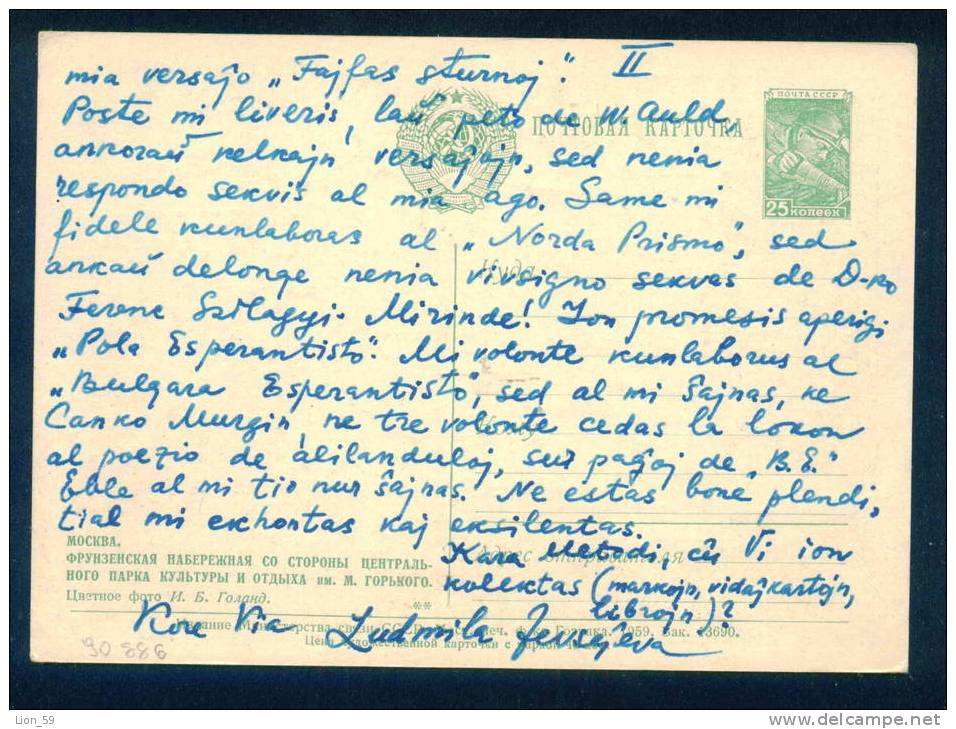 II
mia versaĵo „Fajfas sturnoj".
Poste mi liveris, laŭ peto de W. Auld,
ankoraŭ kelkajn versaĵojn, sed nenia
respondo sekvis al mia ago. Same mi
fidele kunlaboras al „Norda Prismo", sed
ankaŭ delonge nenia vivsigno sekvas de D-ro
Ferenc Szilágyi. Mirinde! Ion promesis aperigi
„Pola Esperantisto". Mi volonte kunlaborus al
„Bulgara Esperantisto", sed al mi ŝajnas, ke
Canko Murgin ne tre volonte cedas la lokon
al poezio de alilanduloj, sur paĝoj de „B.E."
Eble al mi tio nur ŝajnas. Ne estas bone plendi,
tial mi ekhontas kaj eksilentas.
Kara Metodi, ĉu Vi ion
kolektas (markojn, vidaĵkartojn,
librojn)?
Kore Via Ludmila
ПОЧТОВАЯ КАРТОЧКА
ПОЧТА СССР
25 КОПЕЕК
Куда
Кому
МОСКВА.
ФРУНЗЕНСКАЯ НАБЕРЕЖНАЯ СО СТОРОНЫ ЦЕНТРАЛЬ-
НОГО ПАРКА КУЛЬТУРЫ И ОТДЫХА им. М. ГОРЬКОГО.
Цветное фото И. Б. Голанд.
Издание Министерства связи СССР. 1959. Зак. 13690.
Цена художественной карточки с маркой
90 886
Lion_59
www.delcampe.net